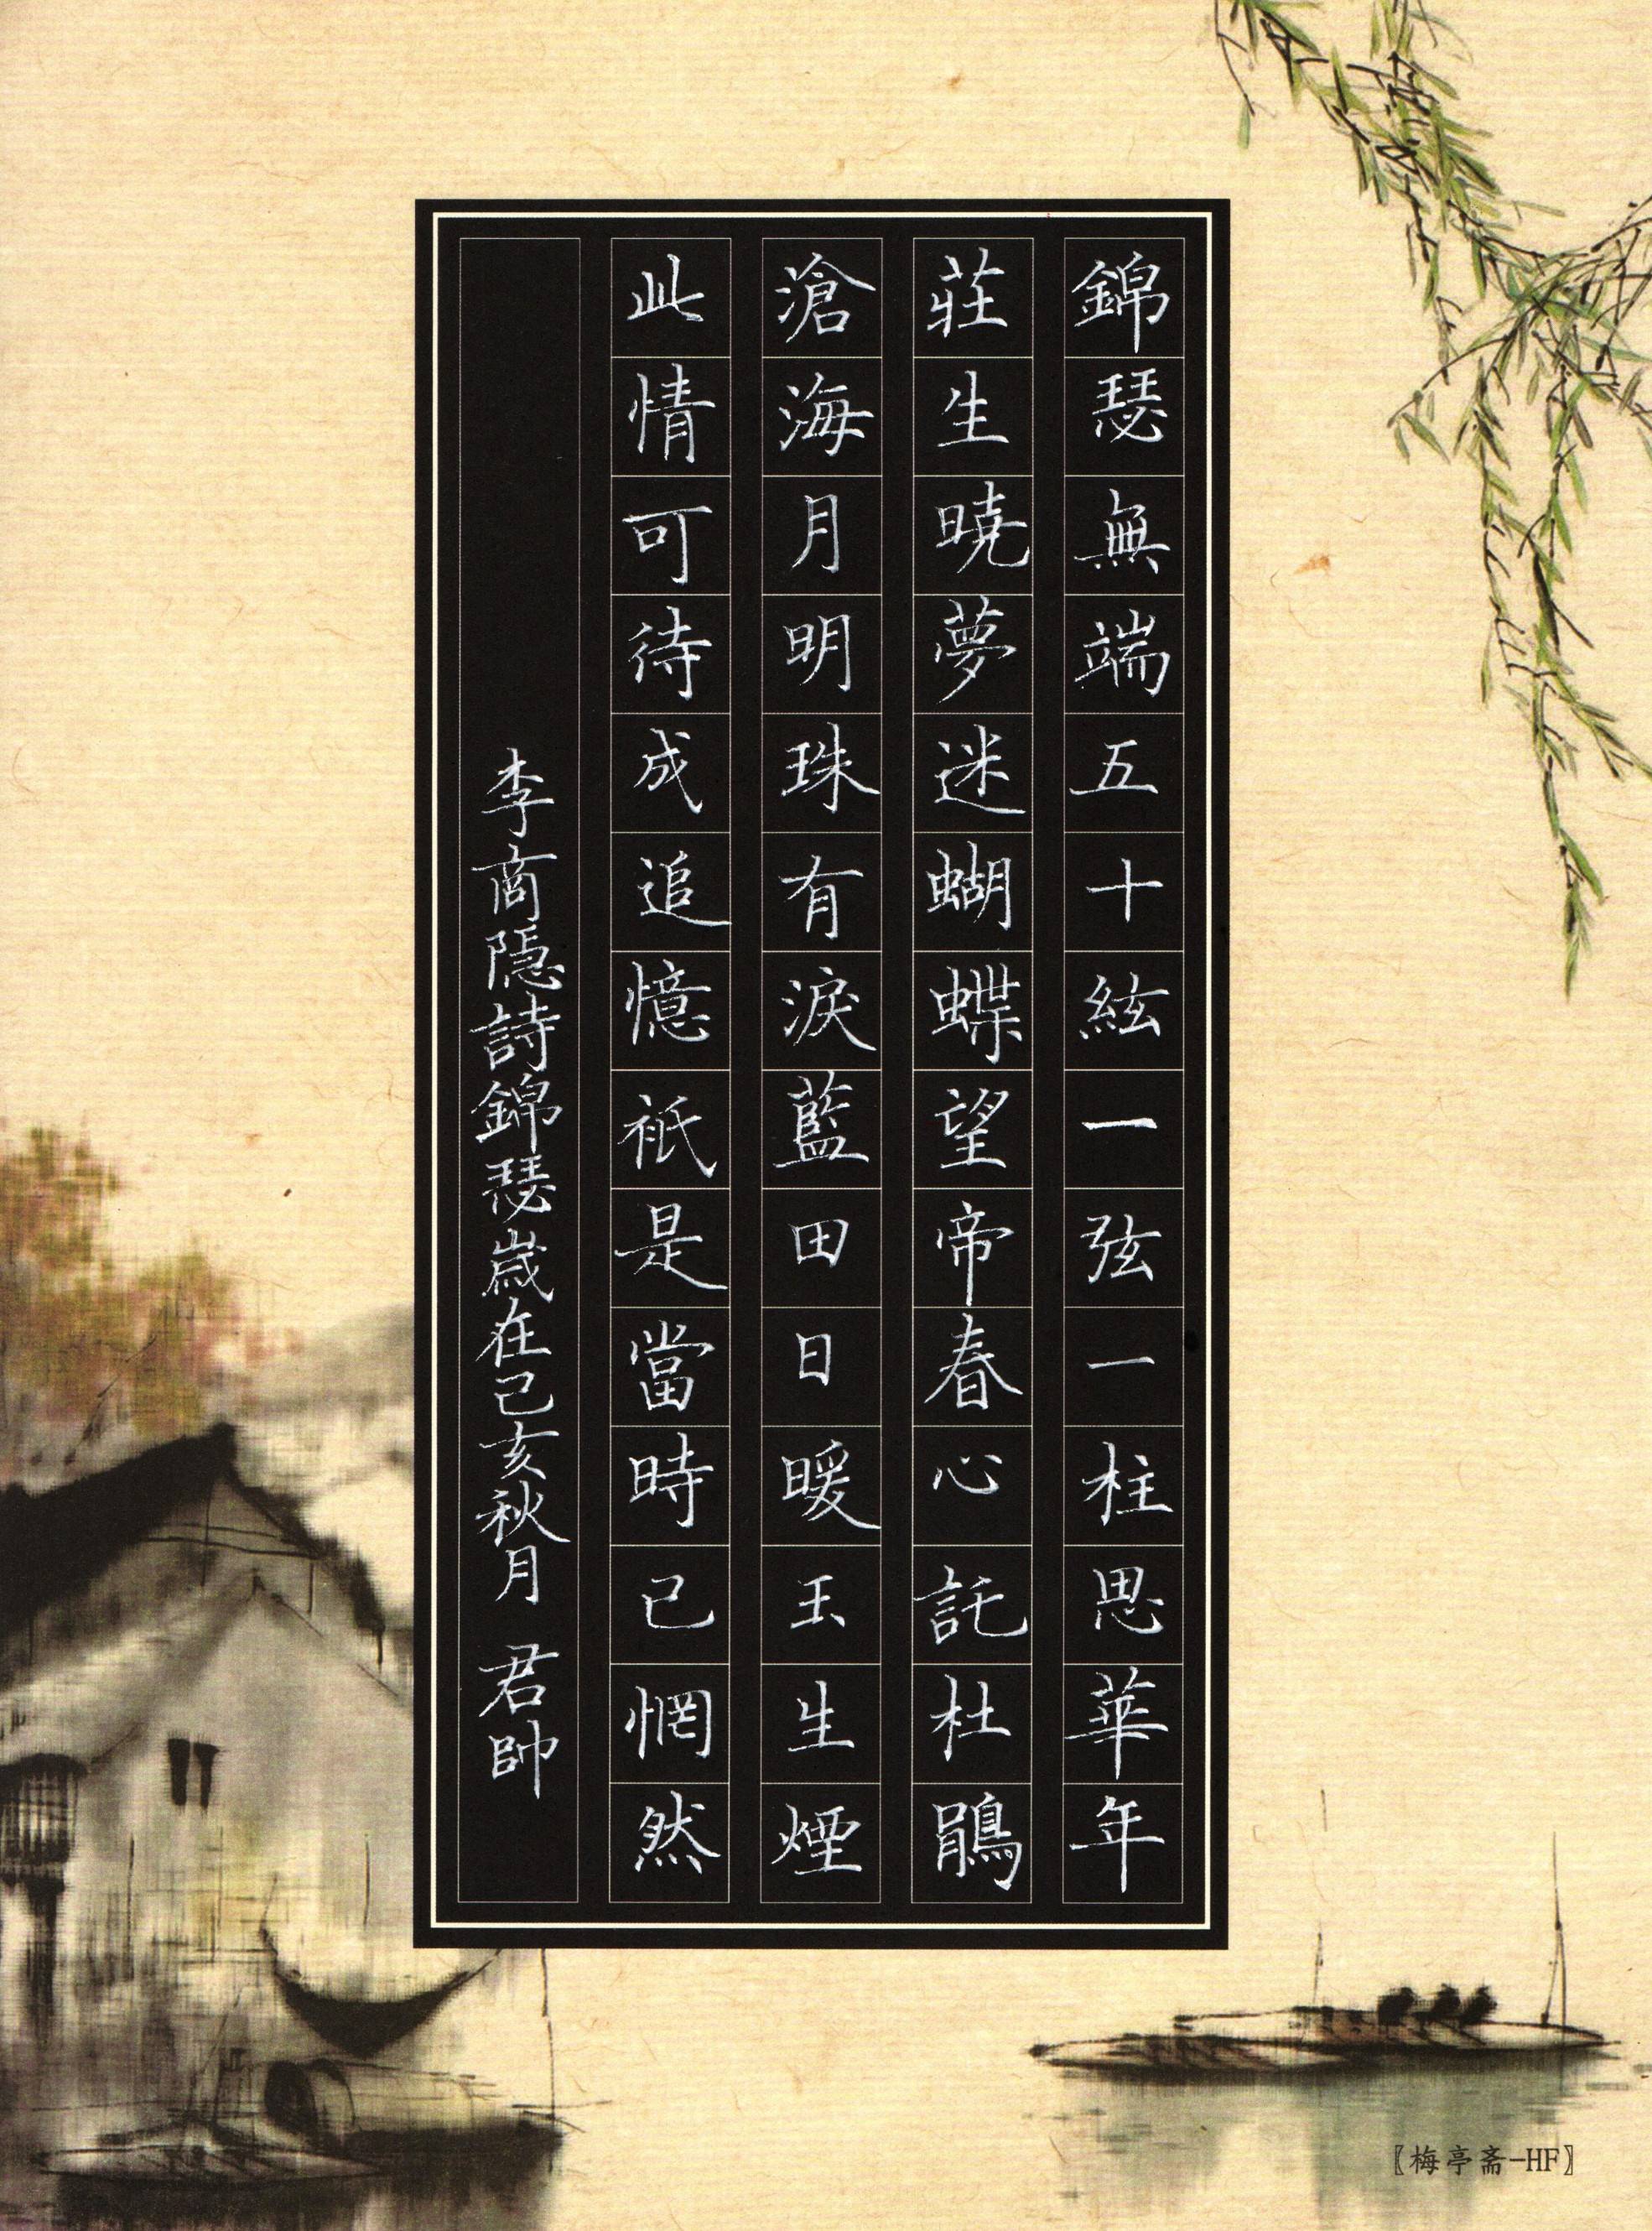 錦瑟無端五十絃一弦一柱思華年
莊生暁夢迷蝴蝶望帝春心託杜鵑
滄海月明珠有淚藍田日暖玉生煙
此情可待成追憶祇是當時已惘然
李商隱詩錦瑟嵗在己亥秋月 君帥
〖梅亭斋-HF〗